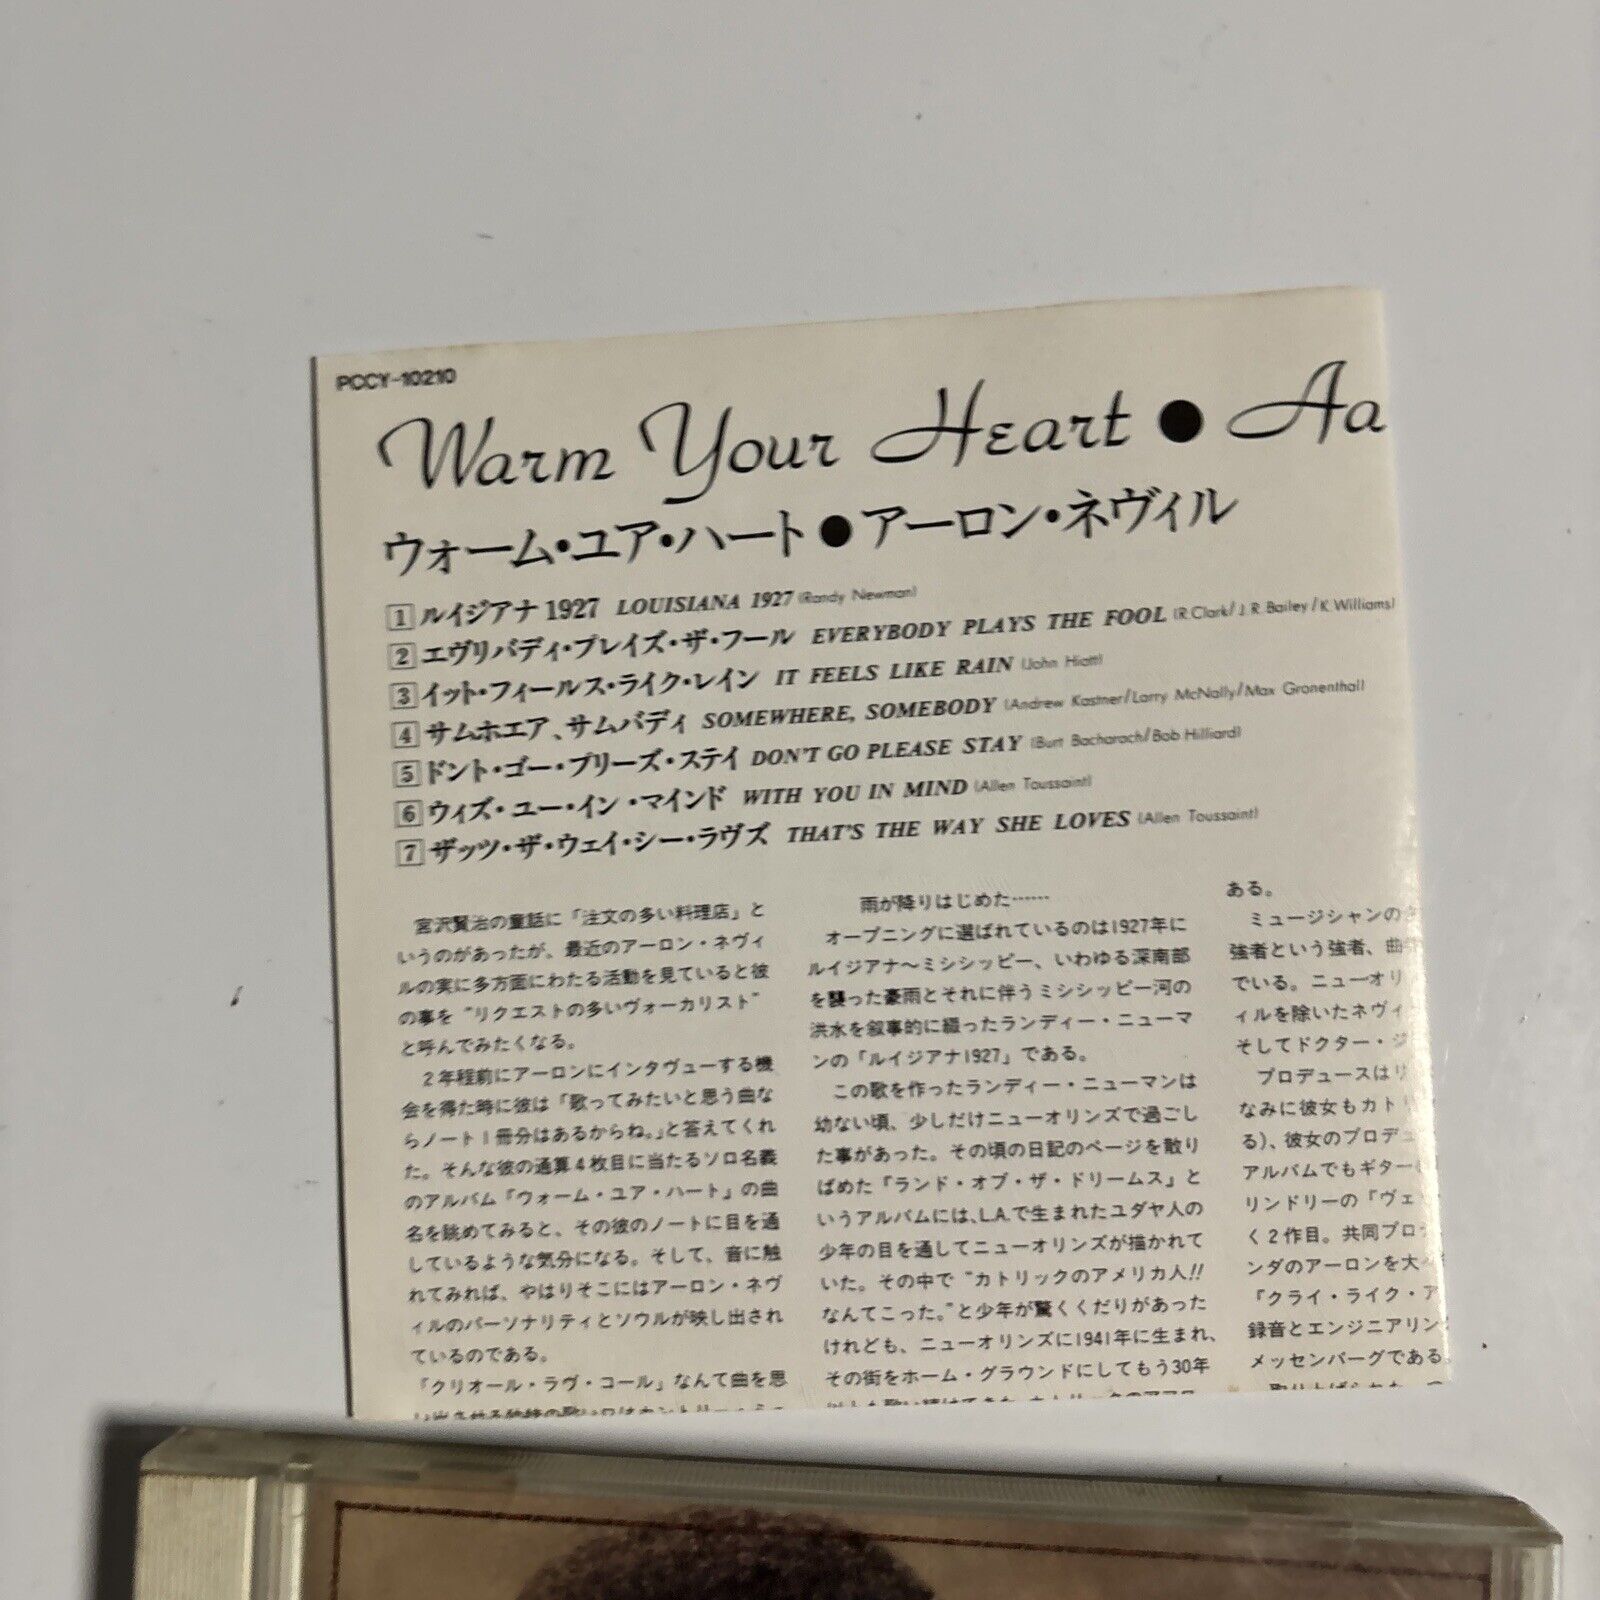 PCCY-10210
Warm Your Heart ● Aa
ウォーム・ユア・ハート●アーロン・ネヴィル
1 ルイジアナ 1927 LOUISIANA 1927 (Randy Newman)
2 エヴリバディ・プレイズ・ザ・フール EVERYBODY PLAYS THE FOOL (R.Clark/J.R.Bailey/K.Williams)
3 イット・フィールス・ライク・レイン IT FEELS LIKE RAIN (John Hiatt)
4 サムホエア、サムバディ SOMEWHERE, SOMEBODY (Andrew Kastner/Larry McNally/Max Gronenthal)
5 ドント・ゴー・プリーズ・ステイ DON'T GO PLEASE STAY (Burt Bacharach/Bob Hilliard)
6 ウィズ・ユー・イン・マインド WITH YOU IN MIND (Allen Toussaint)
7 ザッツ・ザ・ウェイ・シー・ラヴズ THAT'S THE WAY SHE LOVES (Allen Toussaint)
宮沢賢治の童話に「注文の多い料理店」と
いうのがあったが、最近のアーロン・ネヴィ
ルの実に多方面にわたる活動を見ていると彼
の事を"リクエストの多いヴォーカリスト"
と呼んでみたくなる。
2年程前にアーロンにインタヴューする機
会を得た時に彼は「歌ってみたいと思う曲な
らノート1冊分はあるからね。」と答えてくれ
た。そんな彼の通算4枚目に当たるソロ名義
のアルバム「ウォーム・ユア・ハート」の曲
名を眺めてみると、その彼のノートに目を通
しているような気分になる。そして、音に触
れてみれば、やはりそこにはアーロン・ネヴ
ィルのパーソナリティとソウルが映し出され
ているのである。
「クリオール・ラヴ・コール」なんて曲を思
雨が降りはじめた……
オープニングに選ばれているのは1927年に
ルイジアナ〜ミシシッピー、いわゆる深南部
を襲った豪雨とそれに伴うミシシッピー河の
洪水を叙事的に綴ったランディー・ニューマ
ンの「ルイジアナ1927」である。
この歌を作ったランディー・ニューマンは
幼ない頃、少しだけニューオリンズで過ごし
た事があった。その頃の日記のページを散り
ばめた「ランド・オブ・ザ・ドリームス」と
いうアルバムには、L.A.で生まれたユダヤ人の
少年の目を通してニューオリンズが描かれて
いた。その中で"カトリックのアメリカ人!!
なんてこった。"と少年が驚くくだりがあった
けれども、ニューオリンズに1941年に生まれ、
その街をホーム・グラウンドにしてもう30年
ある。
ミュージシャンの
強者という強者、曲
でいる。ニューオリ
ィルを除いたネヴィ
そしてドクター・ジ
プロデュースはリ
なみに彼女もカトリ
る)、彼女のプロデュ
アルバムでもギター
リンドリーの「ヴェ
く2作目。共同プロデ
ンダのアーロンを大
「クライ・ライク・ア
録音とエンジニアリン
メッセンバーグである。